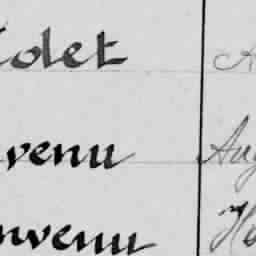 olet A
venu Aug
nvenu H